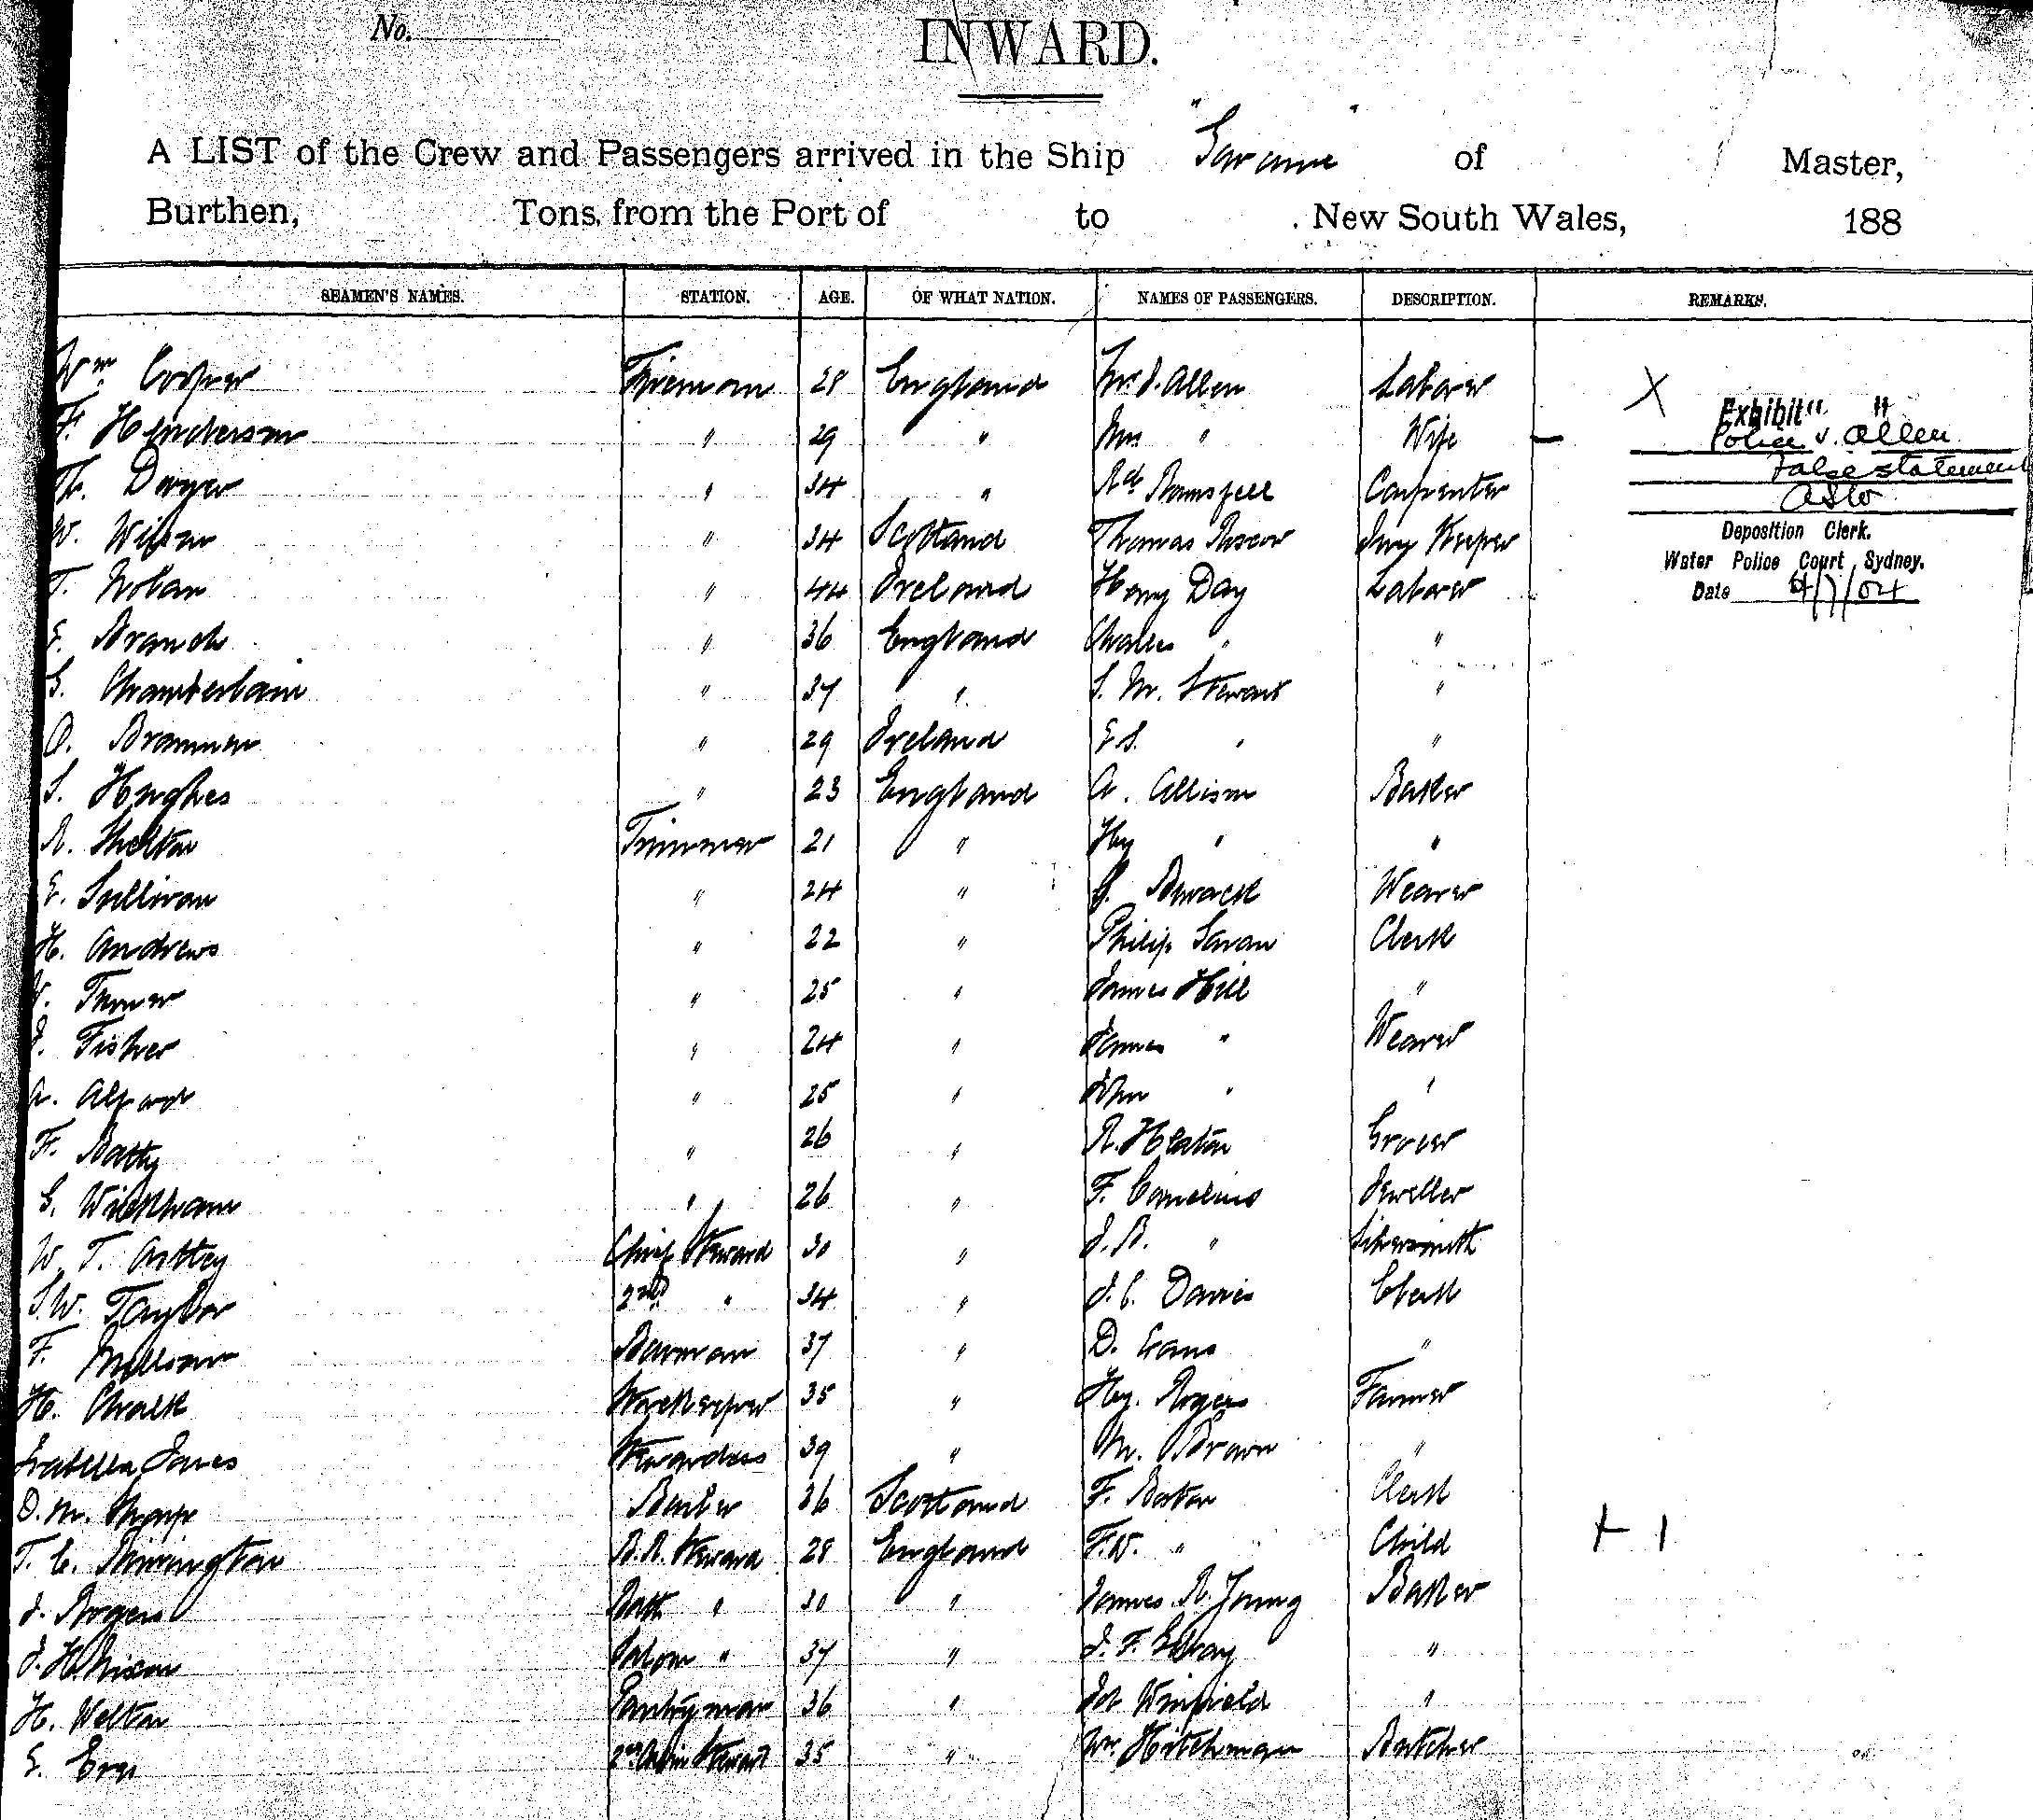 No.
INWARD.
A LIST of the Crew and Passengers arrived in the Ship " " of Master,
Burthen, Tons, from the Port of to New South Wales, 188
SEAMEN'S NAMES. STATION. AGE. OF WHAT NATION. NAMES OF PASSENGERS. DESCRIPTION. REMARKS.
Wm. Cooper Fireman 28 England J. Allen Laborer X
F. Henderson " 29 " Mrs " Wife —
Exhibit " "
Police v. Allen
False statement
Deposition Clerk.
Water Police Court, Sydney.
Date /7/04
Th. Dwyer " 34 " Carpenter
W. Wilson " 34 Scotland Thomas Keeper
T. Nolan " 44 Ireland Henry Day Laborer
E. Branch " 36 England Charles " "
G. Chamberlain " 37 " S. M. Stewart "
O. Brannen " 29 Ireland E S. " "
S. Hughes " 23 England A. Allison Baker
R. Shelton Trimmer 21 " Hy " "
E. Sullivan " 24 " G. Weaver
H. Andrews " 22 " Philip Clerk
Turner " 25 " James Hill "
J. Fisher " 24 " James " Weaver
A. Alford " 25 " John " "
F. Batty " 26 " R. Heaton Grocer
G. Wickham " 26 " F. Cornelius Jeweller
W. T. Chief Steward 30 " J. B. " Silversmith
S. W. Taylor 2nd " 34 " J. C. Davies Clerk
F. Barman 37 " D. Evans "
H. Chalk Storekeeper 35 " Hy. Rogers Farmer
Isabella Jones Stewardess 39 " M. Brown "
D. M. Sharp 36 Scotland F. Clerk
T. C. Rimington B. R. Steward 28 England F. W. " Child + 1
J. Rogers Bath " 30 " James R. Young Baker
J. H. Nixon Saloon " 37 " J. F. "
H. Welton Pantryman 36 " Winfield "
E. 2nd Cabin Steward 35 " Wm. Hitchman Butcher